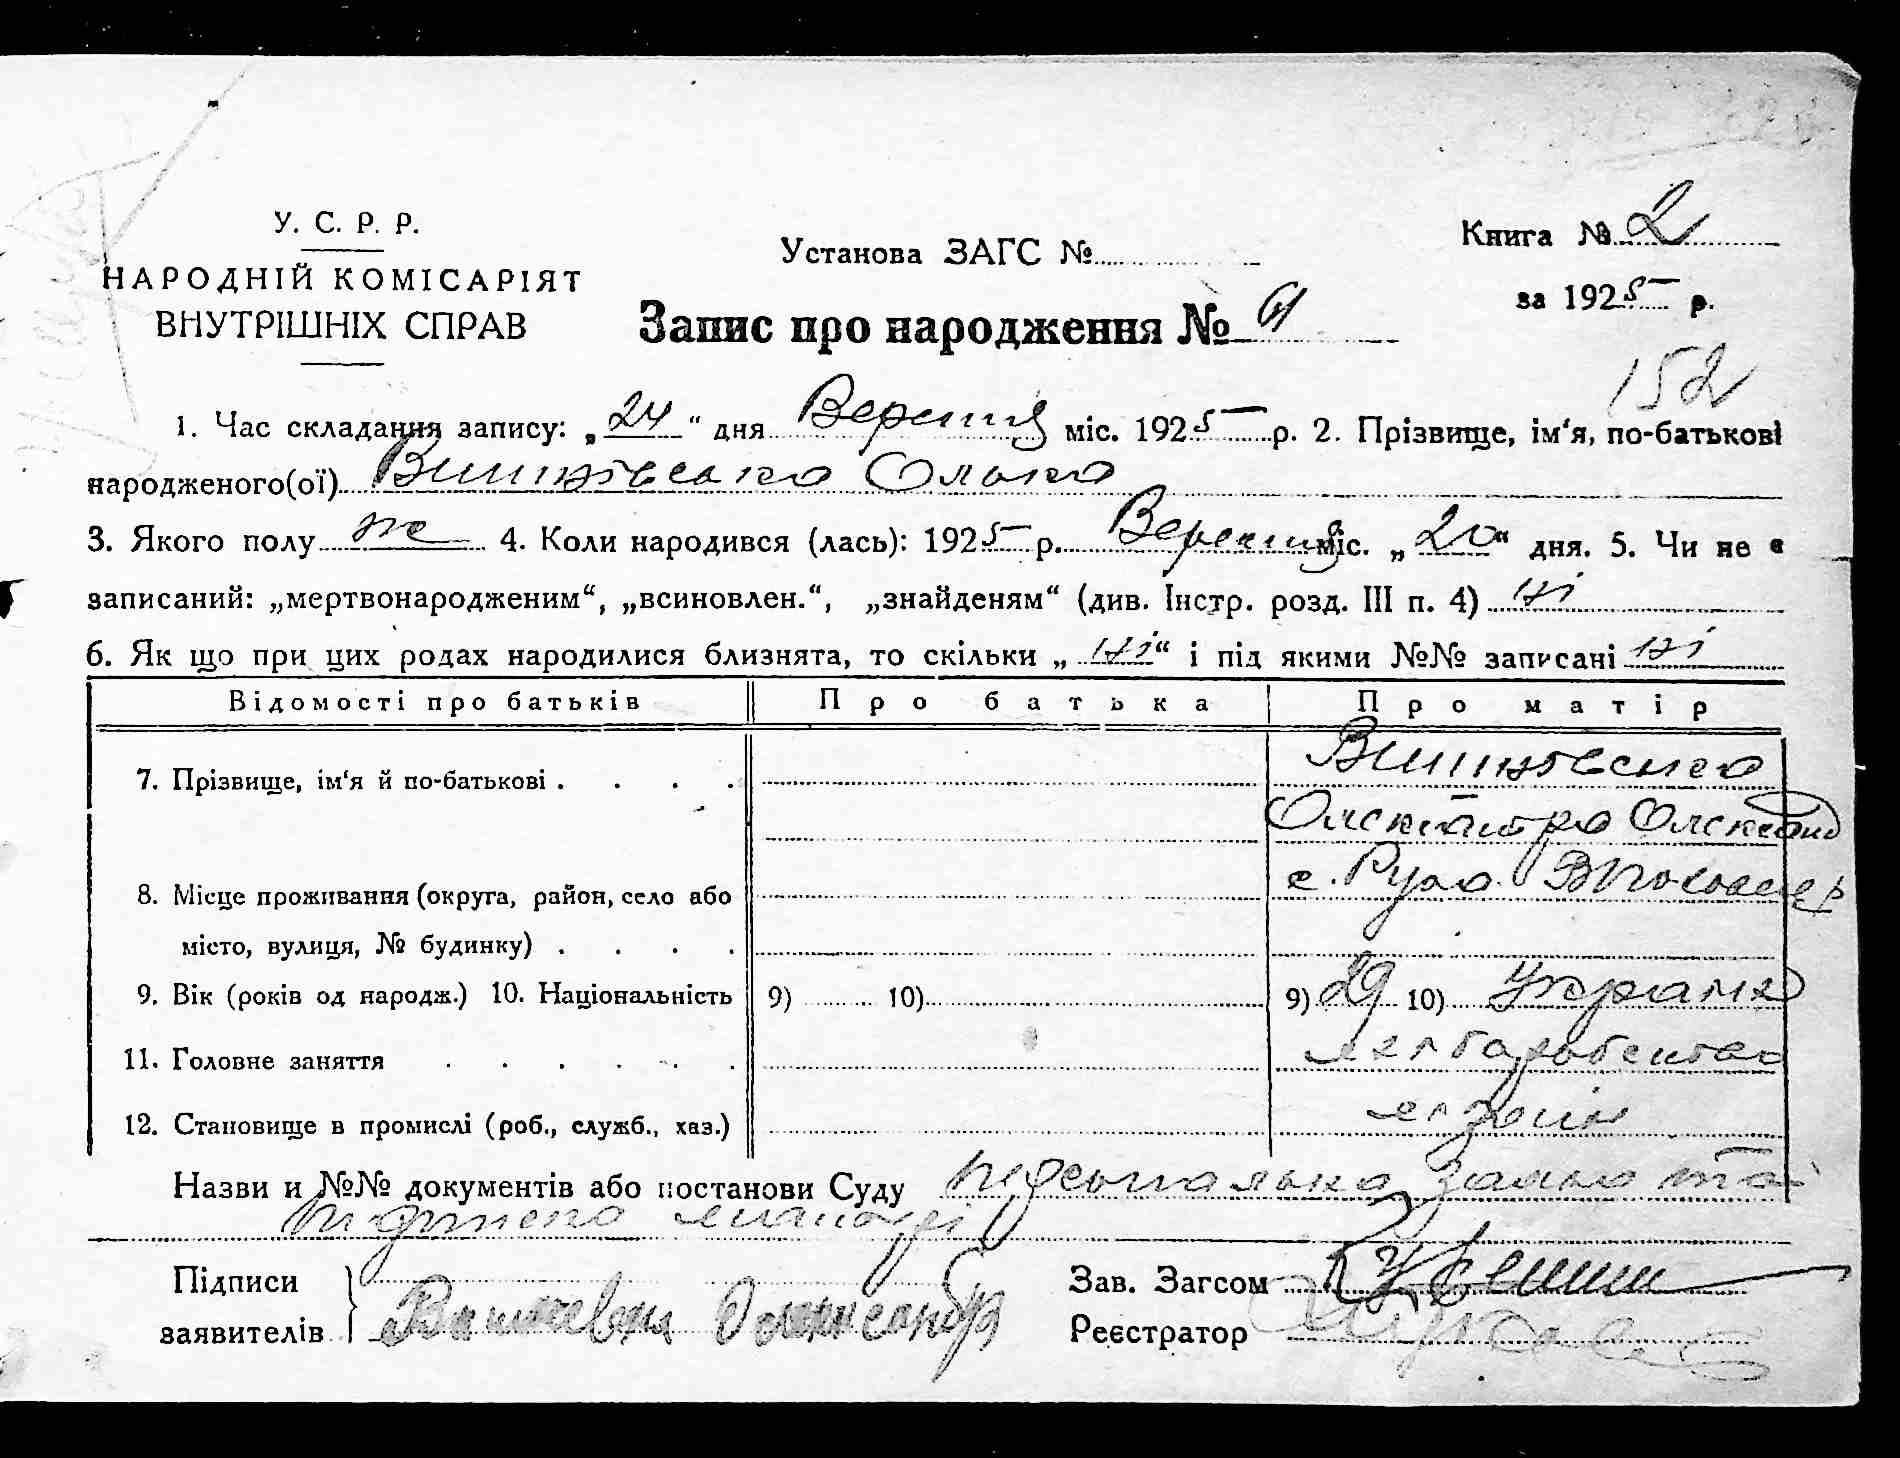 У. С. Р. Р.
НАРОДНІЙ КОМІСАРІЯТ
ВНУТРІШНІХ СПРАВ
Установа ЗАГС №
Книга № 2
за 1925 р.
Запис про народження №
152
1. Час складання запису: „24“ дня Вересня міс. 1925 р. 2. Прізвище, ім‘я, по-батькові
народженого(ої) Вишнівська Ольга
3. Якого полу ж 4. Коли народився (лась): 1925 р. Вересня міс. „20“ дня. 5. Чи не є
записаний: „мертвонародженим“, „всиновлен.“, „знайденям“ (див. Інстр. розд. III п. 4) ні
6. Як що при цих родах народилися близнята, то скільки „ні“ і під якими №№ записані ні
Відомості про батьків Про батька Про матір
7. Прізвище, ім‘я й по-батькові . . . . Вишнівська
Олександра Олександ
8. Місце проживання (округа, район, село або с. Руда
місто, вулиця, № будинку) . . . .
9. Вік (років од народж.) 10. Національність 9) 10) 9) 29 10) Украінка
11. Головне заняття . . . . . . хліборобство
12. Становище в промислі (роб., служб., хаз.)
Назви и №№ документів або постанови Суду заява та
Підписи
заявителів
Зав. Загсом
Реєстратор